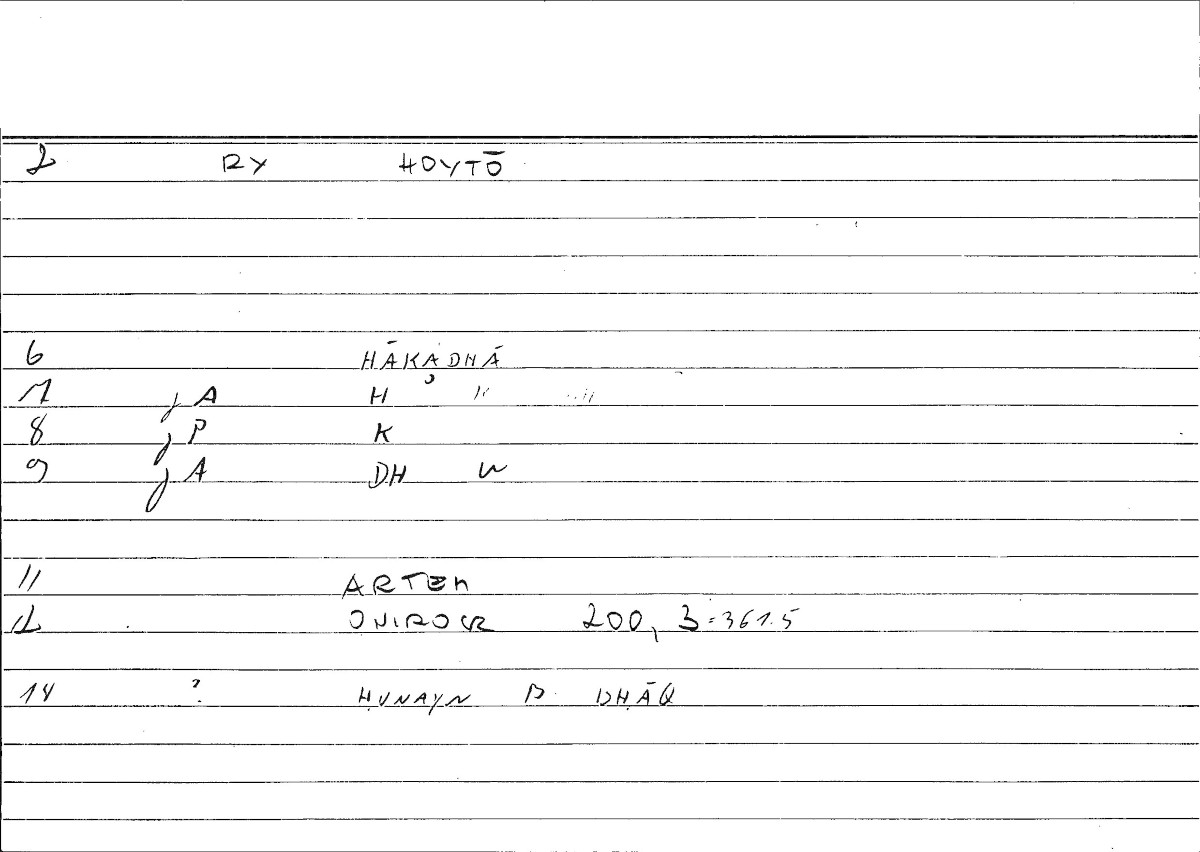 2 RY HOYTŌ
6 HĀKADHĀ
7 j A H " "
8 j P K
9 j A DH W
11 ARTEM
12 ONIROCR 200, 3 = 361.5
14 ? ḤUNAYN B